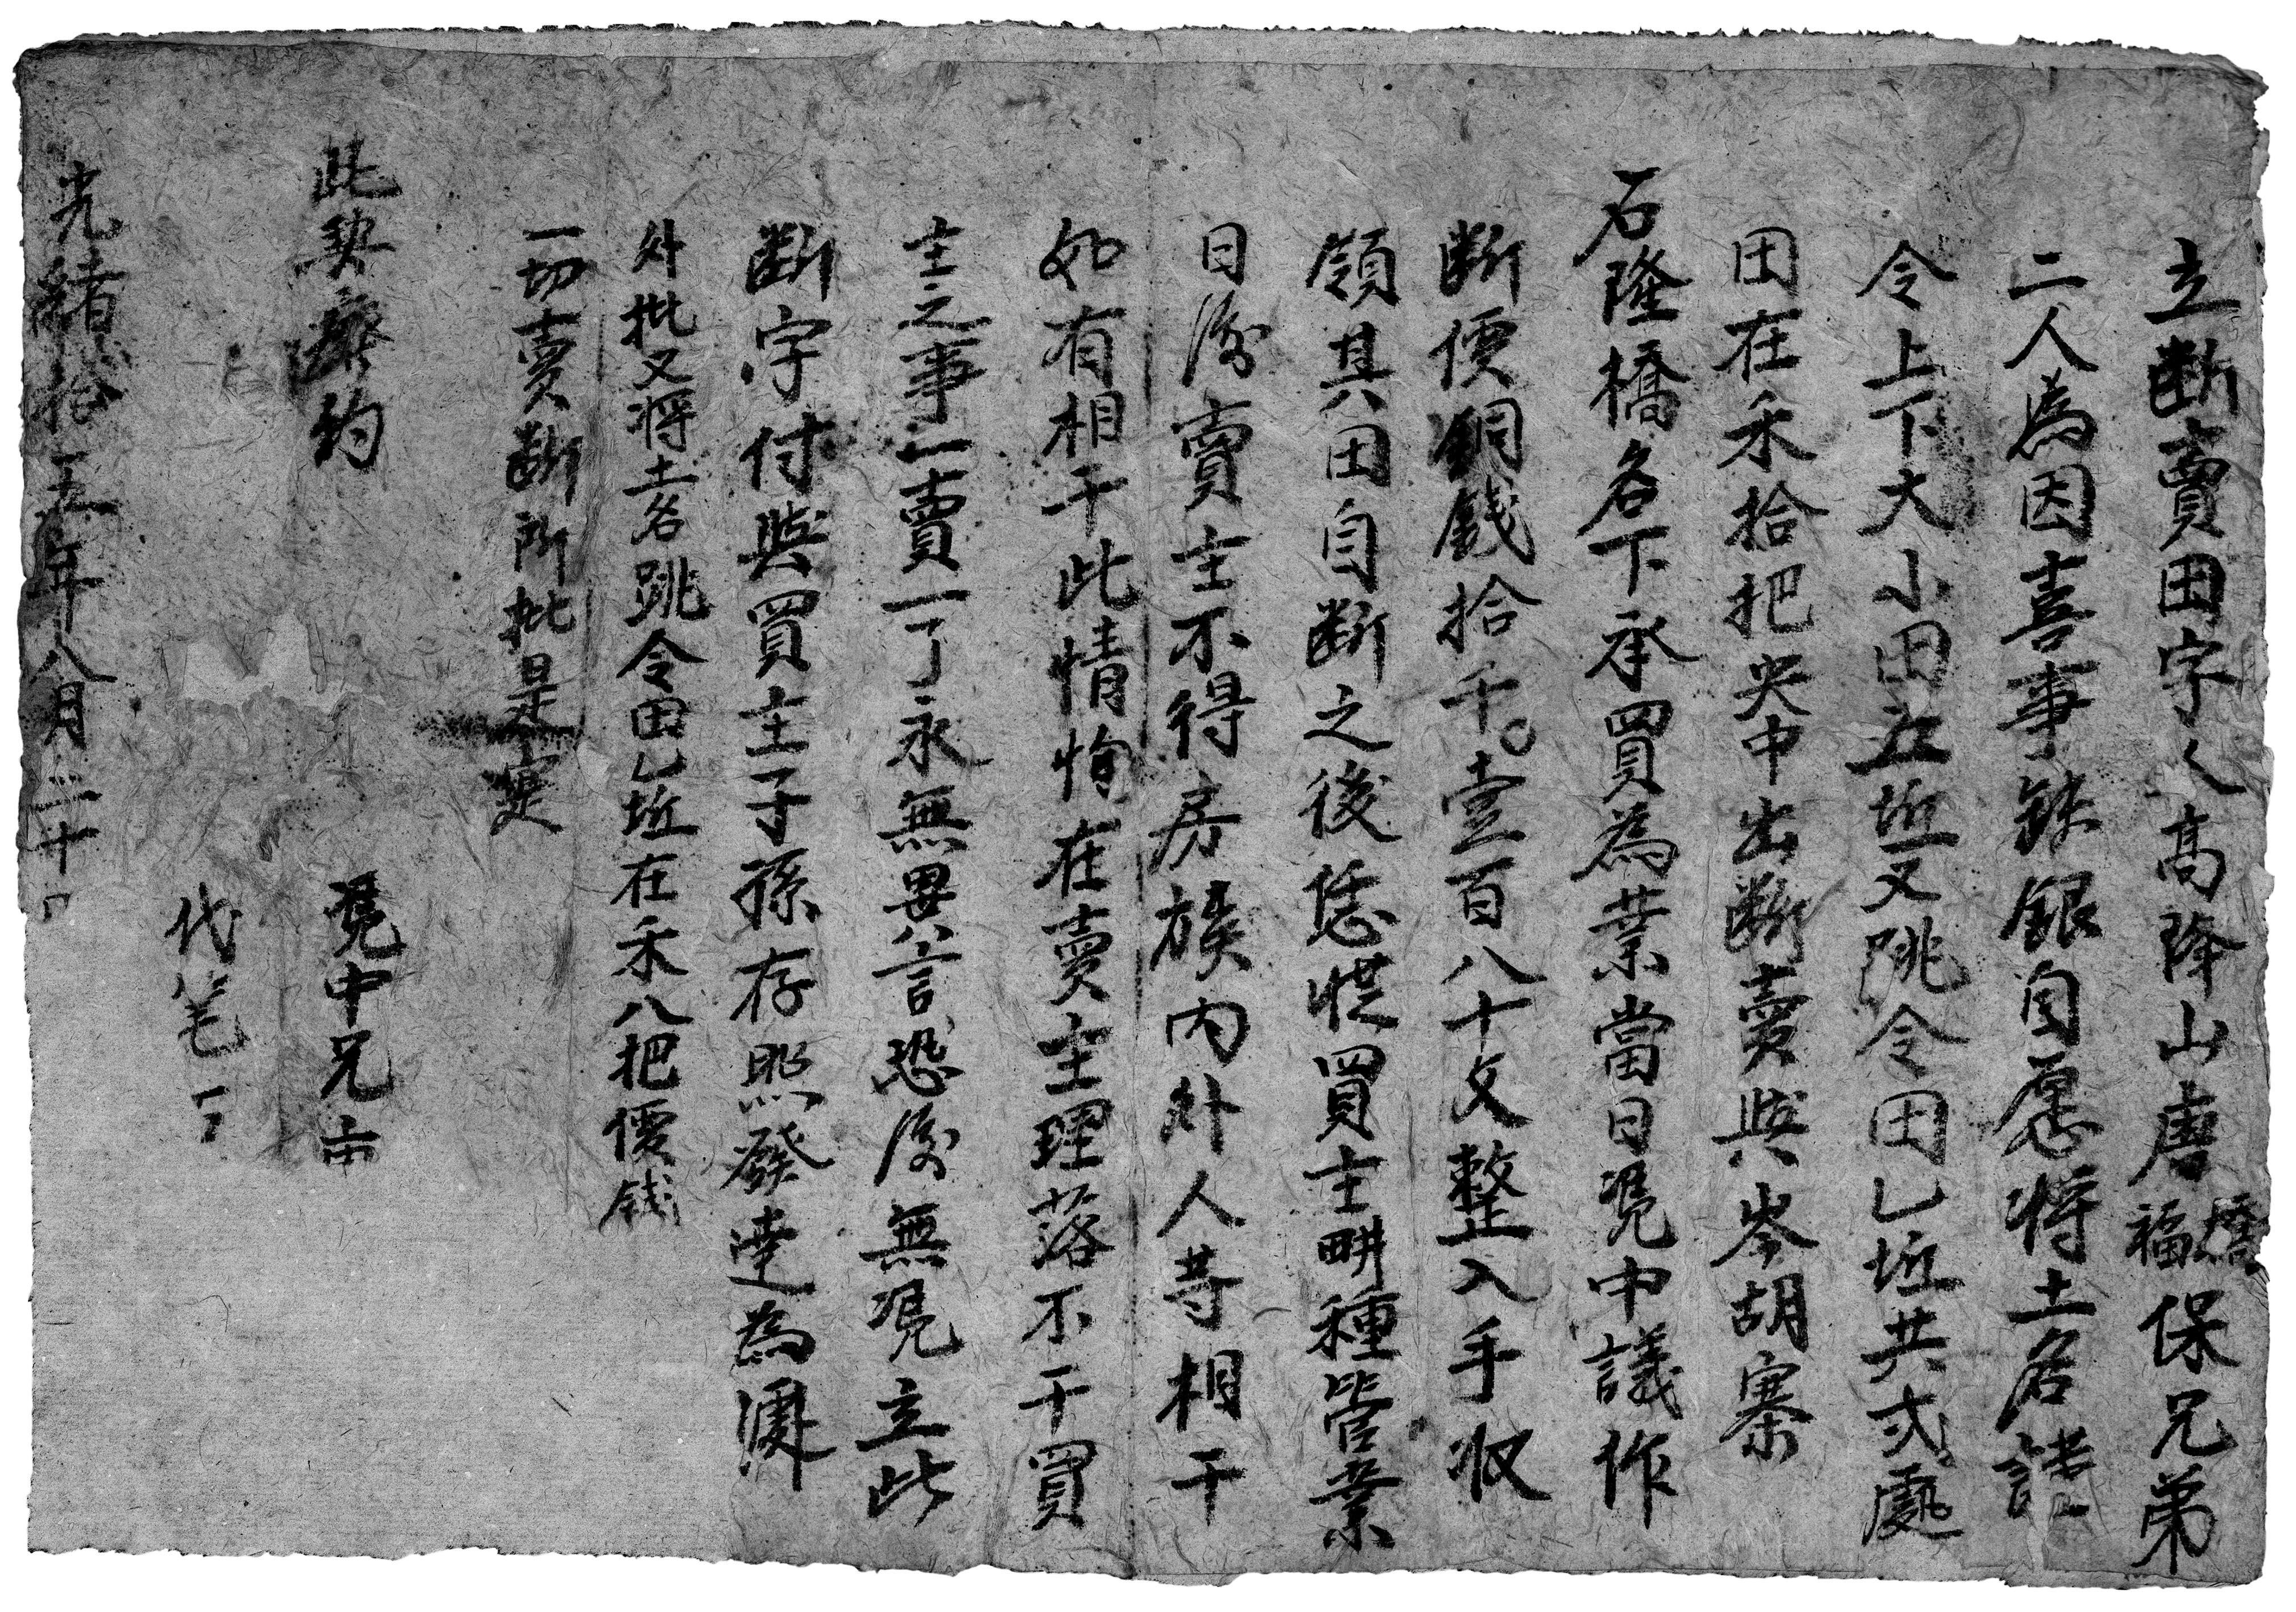 立断賣田字人高降山唐橋福保兄弟
二人為因喜事缺銀自愿将土名
令上下大小田五坵又跳令田乚坵共弍處
田在禾拾把央中出断賣與岑胡寨
石隆橋名下承買為業當日凴中議作
断價銅錢拾千〇壹百八十文整入手收
領其田自断之後恁從買主畊種管業
日後賣主不得房族内外人等相干
如有相干此情恂在賣主理落不干買
主之事一賣一了永無異言恐後無凴立此
断字付與買主子孫存照發達為
外批又将土名跳令田乚坵在禾八把價錢
一切賣断所批是寔
此契廢約 凴中兄
代笔
光緒拾五年八月二十日